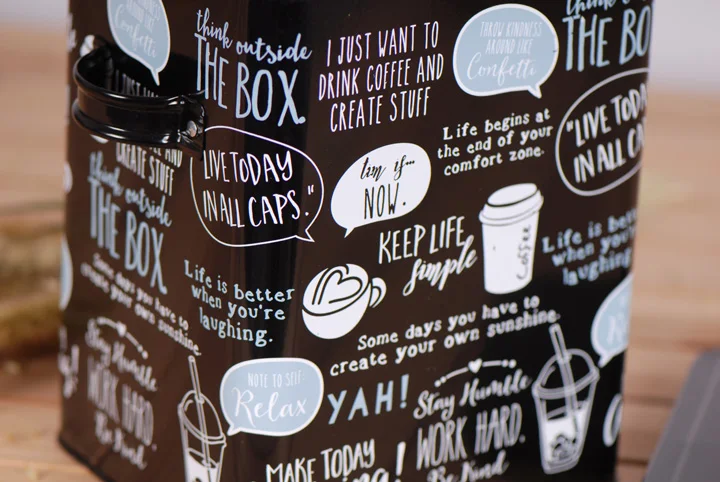 Confetti
think outside
THE BOX.
I JUST WANT TO
DRINK COFFEE AND
CREATE STUFF
THROW KINDNESS
AROUND LIKE
Confetti
think outside
THE BO
"LIVE TODAY
IN ALL CAPS."
NOW.
Life begins at
the end of your
comfort zone.
"LIVE TODA
IN ALL CAP
AND
CREATE STUFF
think outside
THE BOX
KEEP LIFE
Simple
Coffee
Life is bet
when you'r
laughing
Some days you have to
create your own sunshine.
Life is better
when you're
laughing.
Some days you have to
create your own sunshine.
Stay Humble
WORK HARD.
Be Kind
NOTE TO SELF:
Relax
YAH!
Stay Humble
WORK HARD.
Be Kind
MAKE TODAY